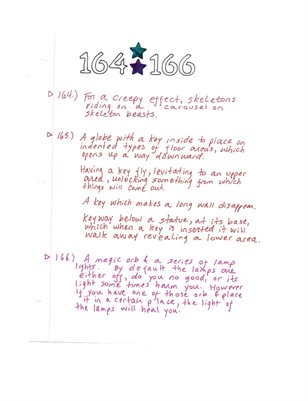 164 ★ 166
▷ 164.) For a creepy effect, skeletons
riding on a carousel on
skeleton beasts.
▷ 165.) A globe with a key inside to place on
indented types of floor areas, which
opens up a way downward.
Having a key fly, levitating to an upper
area, unlocking something from which
things will come out.
A key which makes a long wall disappear.
Keyway below a statue, at its base,
which when a key is inserted it will
walk away revealing a lower area.
▷ 166.) A magic orb & a series of lamp
lights. By default the lamps are
either off, do you no good, or its
light some times harm you. However
if you have one of those orbs & place
it in a certain place, the light of
the lamps will heal you.